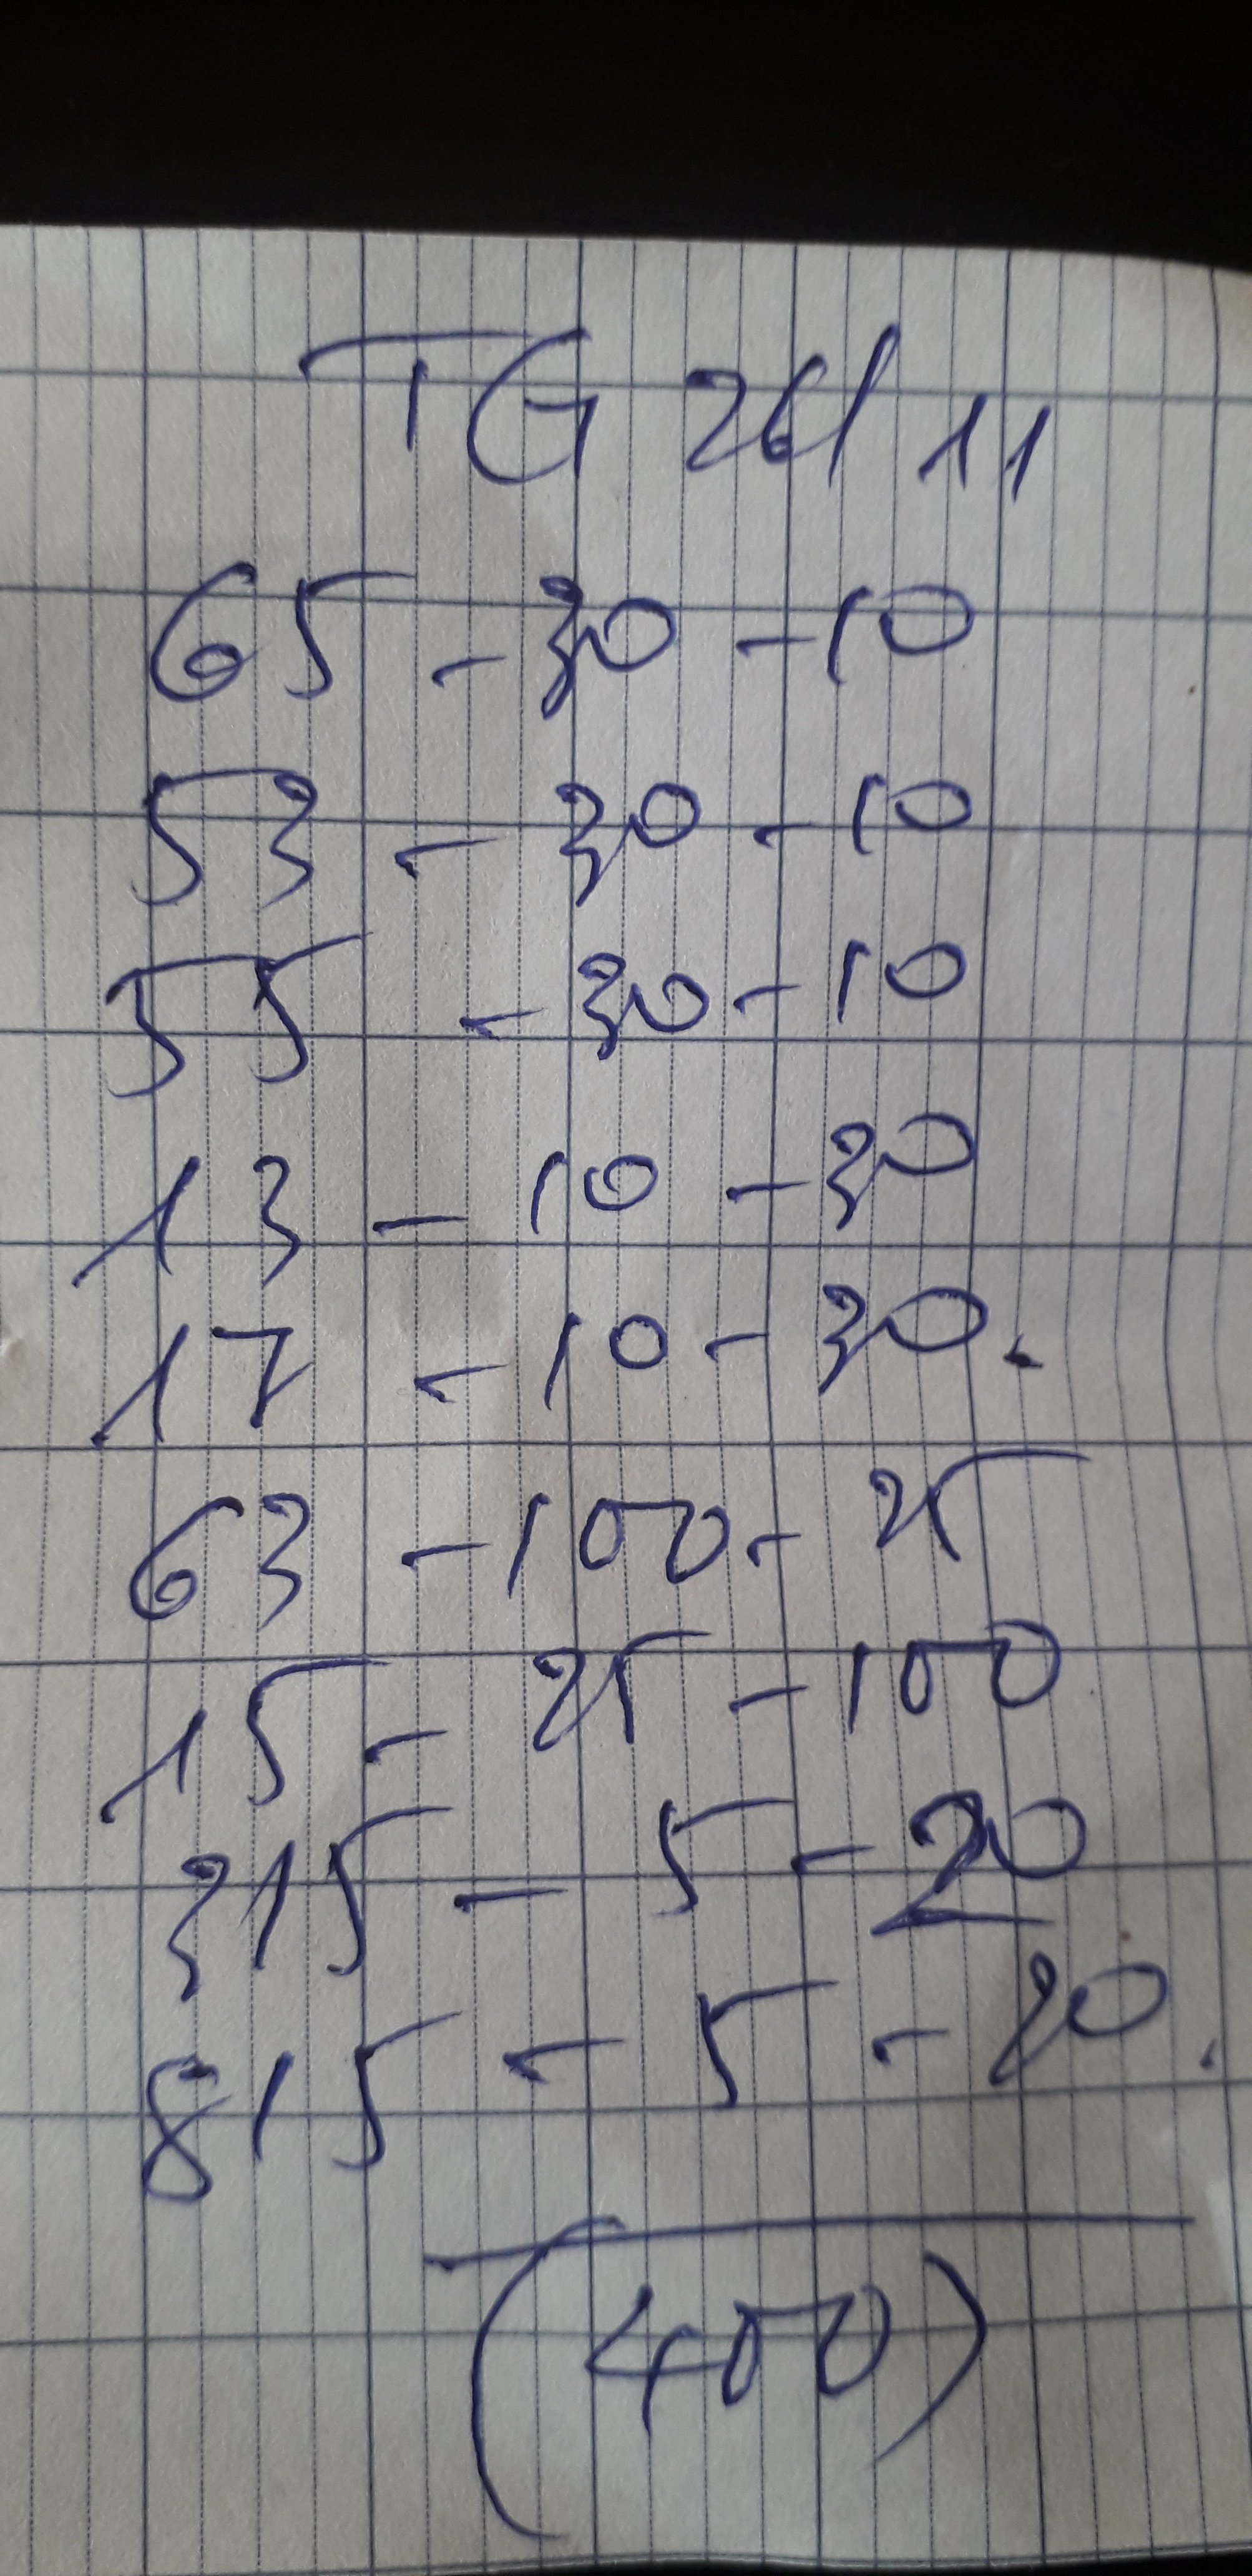 TG 26/11
65 - 30 - 10
53 - 30 - 10
55 - 30 - 10
13 - 10 - 30
17 - 10 - 30.
63 - 100 - 25
15 - 25 - 100
315 - 5 - 20
815 - 5 - 20.
(400)